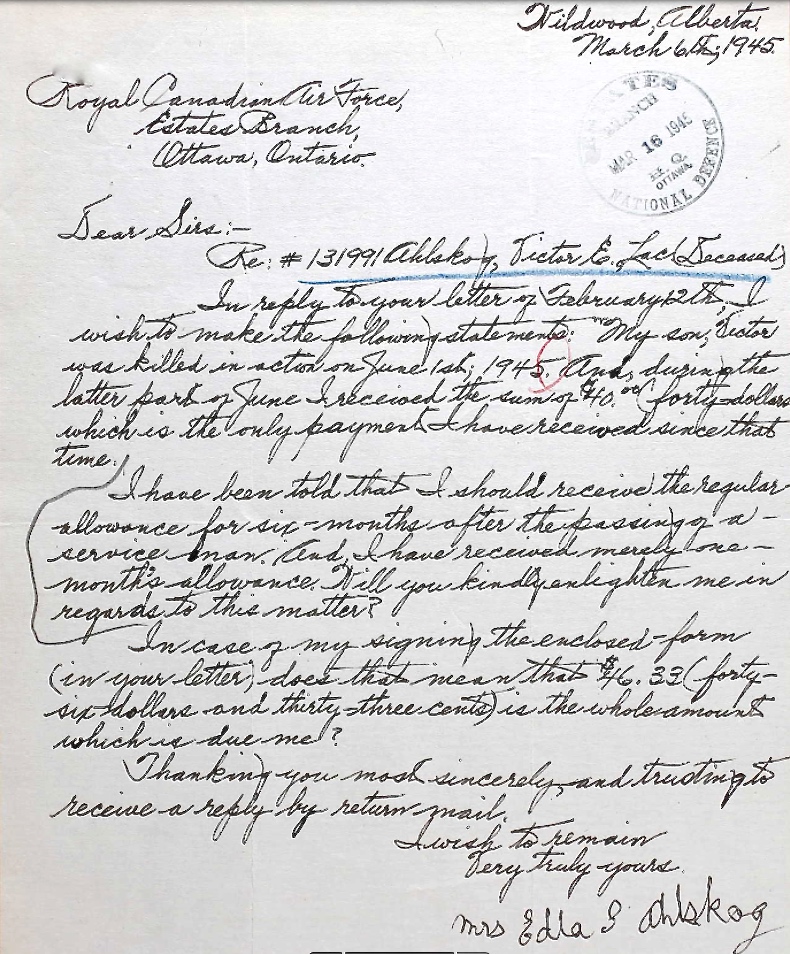 Wildwood, Alberta.
March 6th, 1945.
Royal Canadian Air Force,
Estates Branch,
Ottawa, Ontario.
ESTATES
BRANCH
MAR 16 1945
H. Q.
OTTAWA
NATIONAL DEFENCE
Dear Sirs:-
Re: # 131991 Ahlskog, Victor E. Lac (Deceased)
In reply to your letter of February 12th, I
wish to make the following statements: My son, Victor
was killed in action on June 1st, 1945. And, during the
latter part of June I received the sum of $40.00 (forty-dollars
which is the only payment I have received since that
time.
I have been told that I should receive the regular
allowance for six-months after the passing of a-
service man. And, I have received merely one-
month's allowance. Will you kindly enlighten me in
regards to this matter?
In case of my signing the enclosed-form
(in your letter) does that mean that $46.33 (forty-
six-dollars and thirty-three cents) is the whole amount
which is due me?
Thanking you most sincerely, and trusting to
receive a reply by return mail.
I wish to remain
Very truly yours.
Mrs Edla S Ahlskog